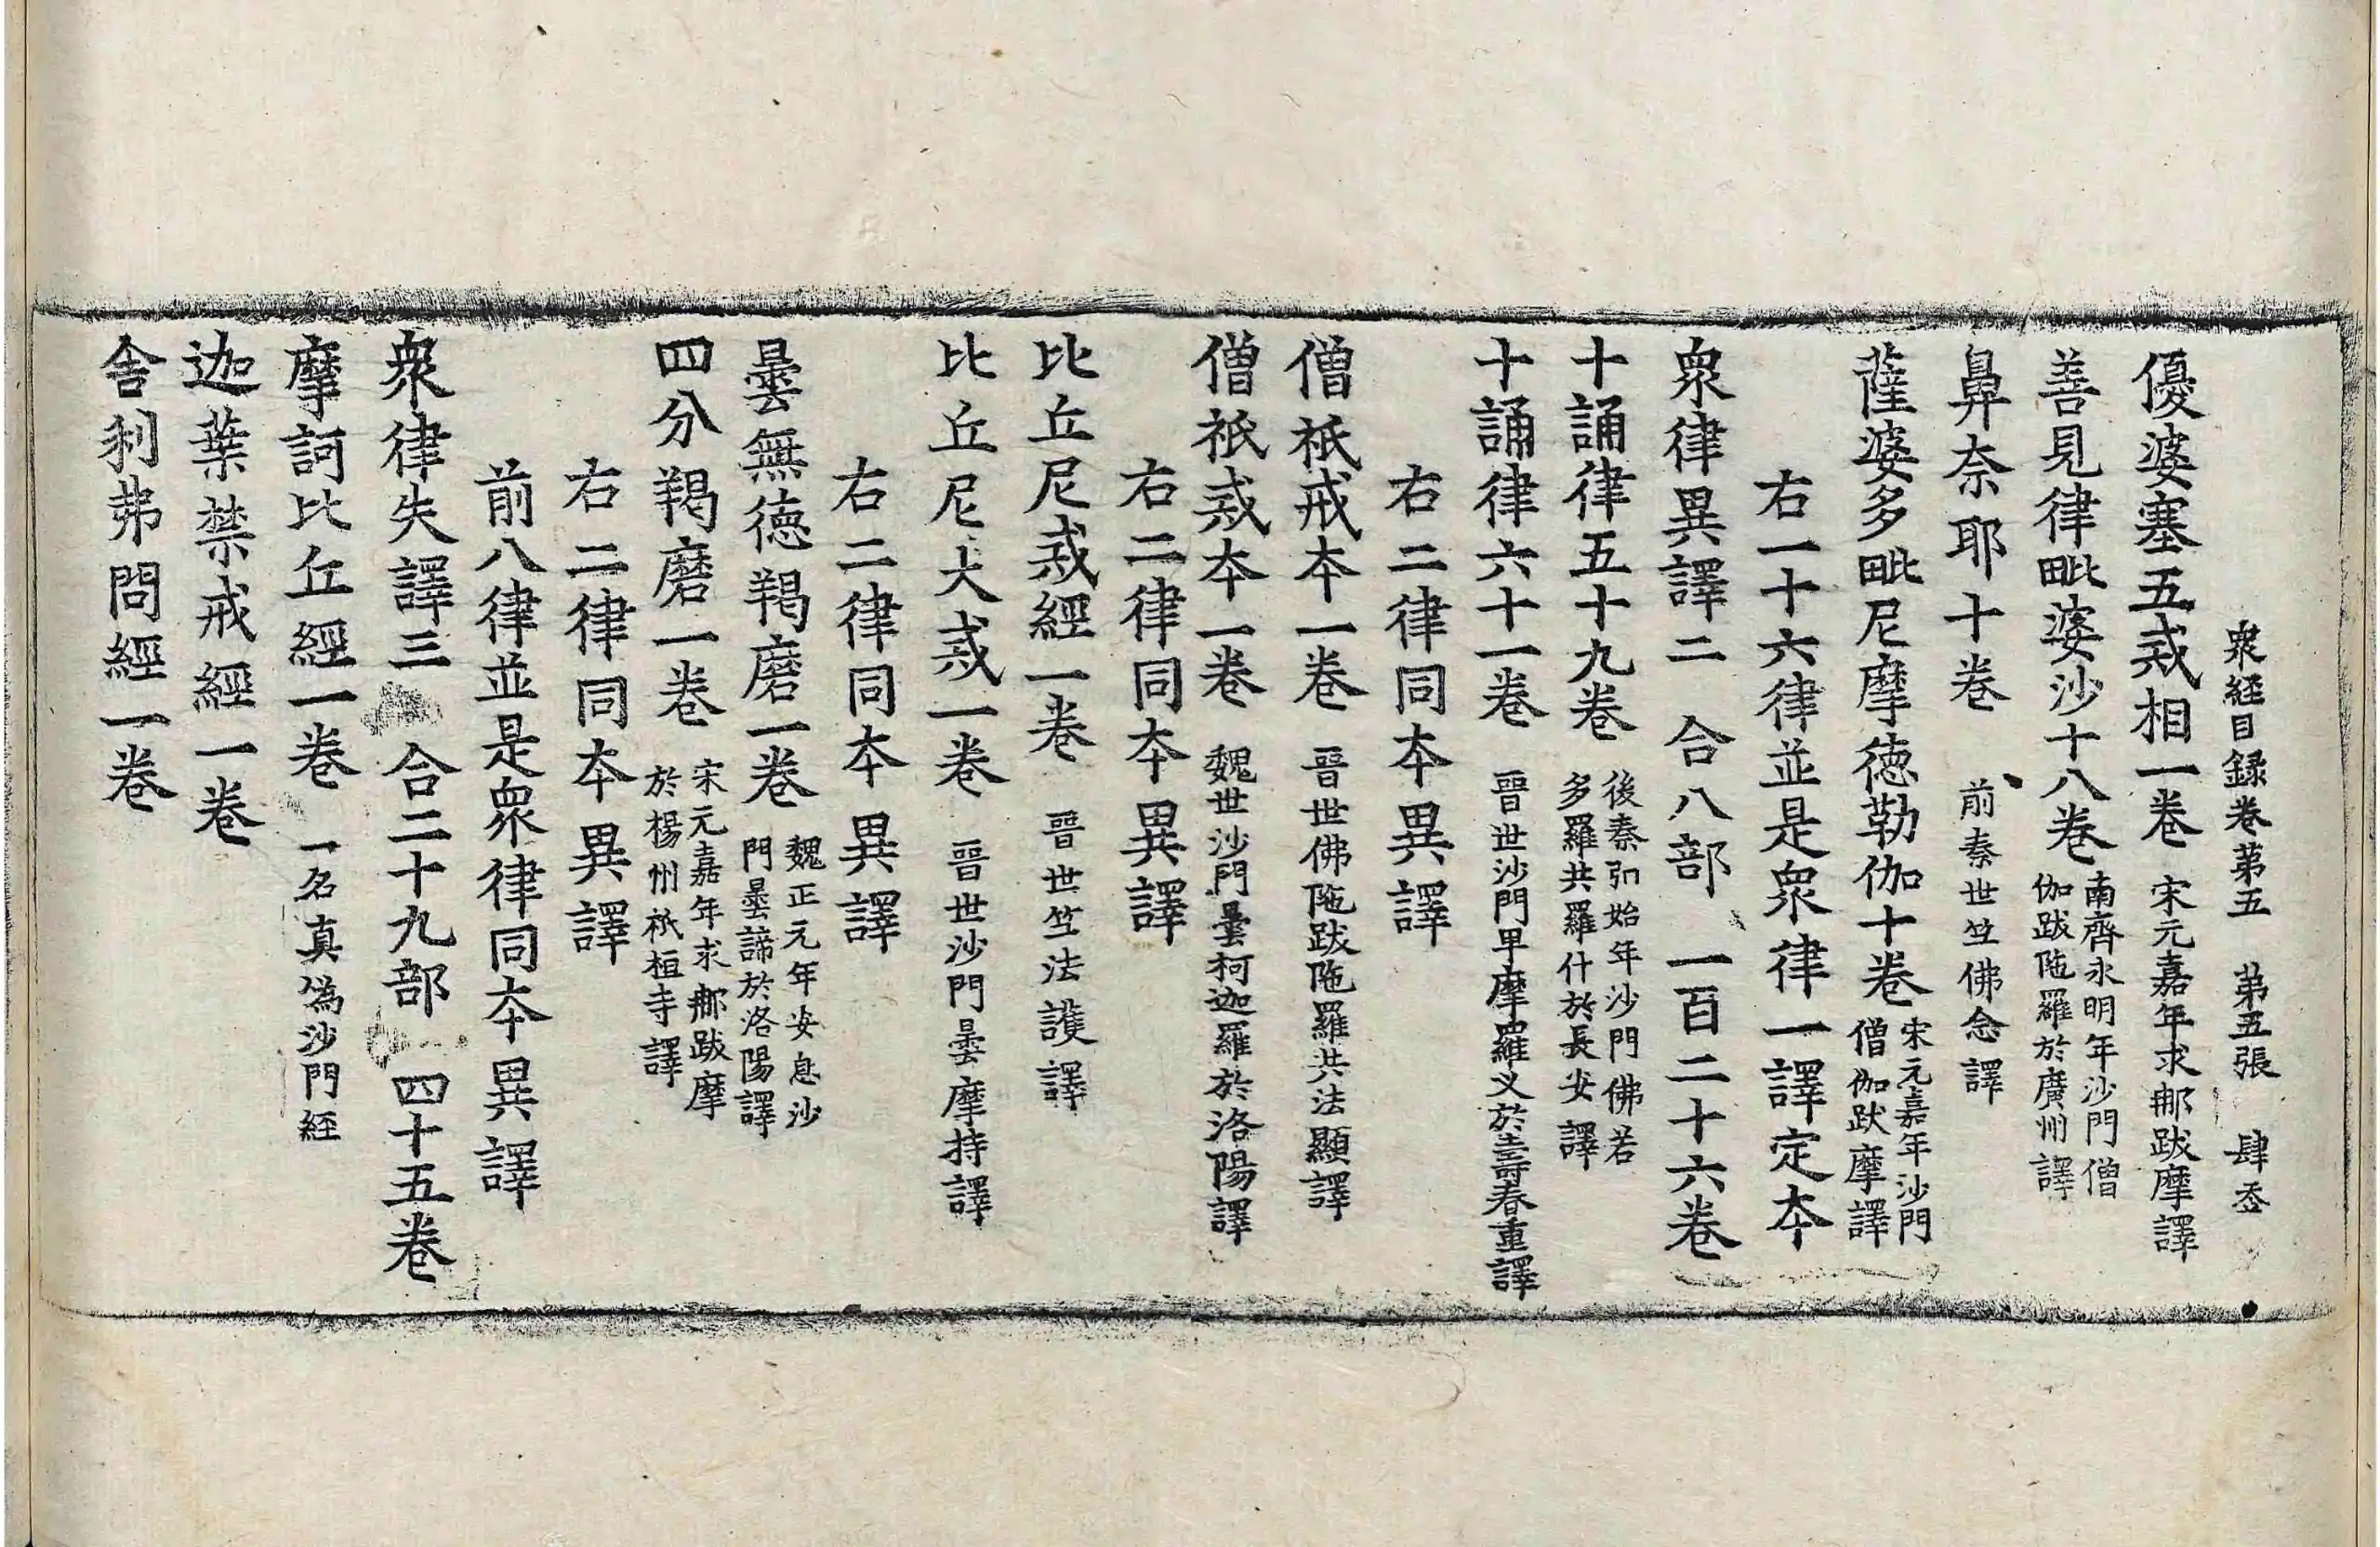 衆經目録卷第五　第五張　肆岙
優婆塞五戒相一卷 宋元嘉年求那跋摩譯
善見律毗婆沙十八卷 南齊永明年沙門僧伽跋陁羅於廣州譯
鼻奈耶十卷 前秦世竺佛念譯
薩婆多毗尼摩徳勒伽十卷 宋元嘉年沙門僧伽跋摩譯
右一十六律並是衆律一譯定夲
衆律異譯二 合八部 一百二十六卷
十誦律五十九卷 後秦弘始年沙門佛若多羅共羅什於長安譯
十誦律六十一卷 晉世沙門卑摩羅叉於壽春重譯
右二律同夲異譯
僧祇戒夲一卷 晉世佛陁跋陁羅共法顯譯
僧祇戒夲一卷 魏世沙門曇柯迦羅於洛陽譯
右二律同夲異譯
比丘尼戒經一卷 晉世竺法護譯
比丘尼大戒一卷 晉世沙門曇摩持譯
右二律同夲異譯
曇無徳羯磨一卷 魏正元年安息沙門曇諦於洛陽譯
四分羯磨一卷 宋元嘉年求那跋摩於楊州祇桓寺譯
右二律同夲異譯
前八律並是衆律同夲異譯
衆律失譯三 合二十九部 四十五卷
摩訶比丘經一卷 一名真偽沙門経
迦葉禁戒經一卷
舎利弗問經一卷